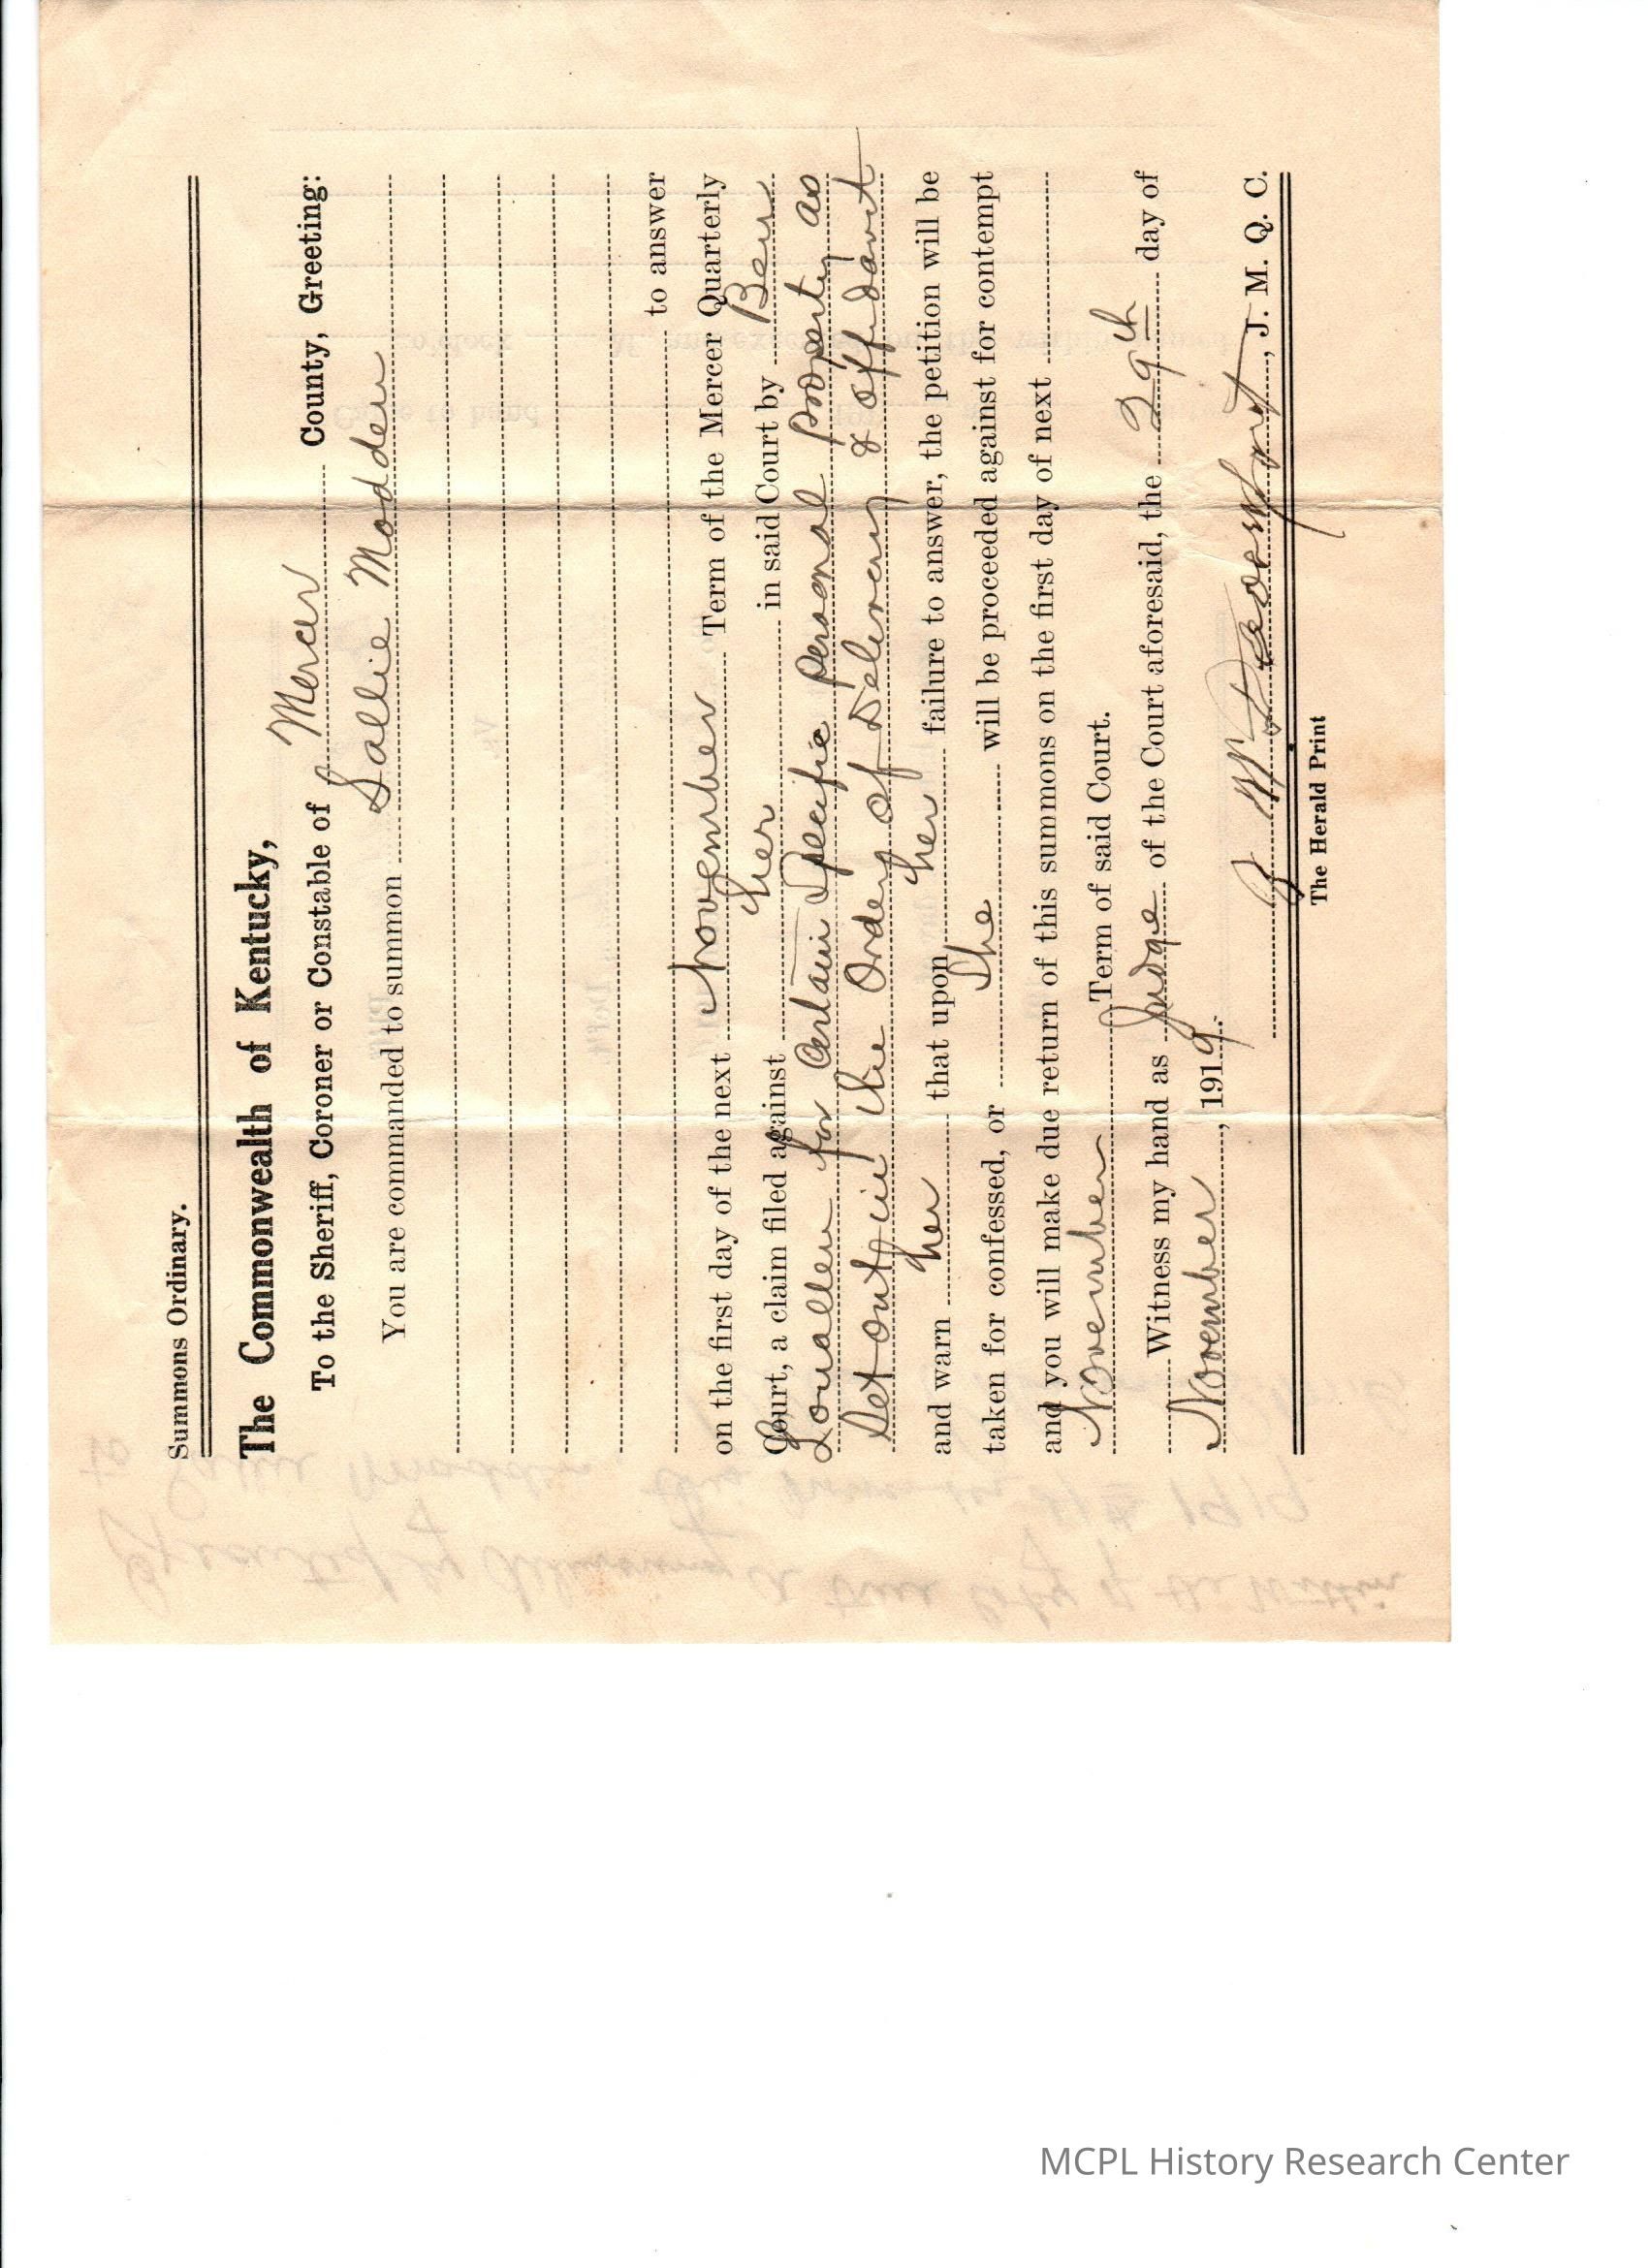 Summons Ordinary.
The Commonwealth of Kentucky,
To the Sheriff, Coroner or Constable of Mercer County, Greeting:
You are commanded to summon Sallie Madden
to answer
on the first day of the next November Term of the Mercer Quarterly
Court, a claim filed against her in said Court by Ben
Louallen for Certain Specific personal property as
Set out in the Order of Delivery & affidavit
and warn her that upon her failure to answer, the petition will be
taken for confessed, or She will be proceeded against for contempt
and you will make due return of this summons on the first day of next
November Term of said Court.
Witness my hand as Judge of the Court aforesaid, the 29th day of
November, 1919.
J. M. Q. C.
The Herald Print
Executed by delivering a true Copy of the Within
to Sallie Madden. This November 29th 1919.
MCPL History Research Center